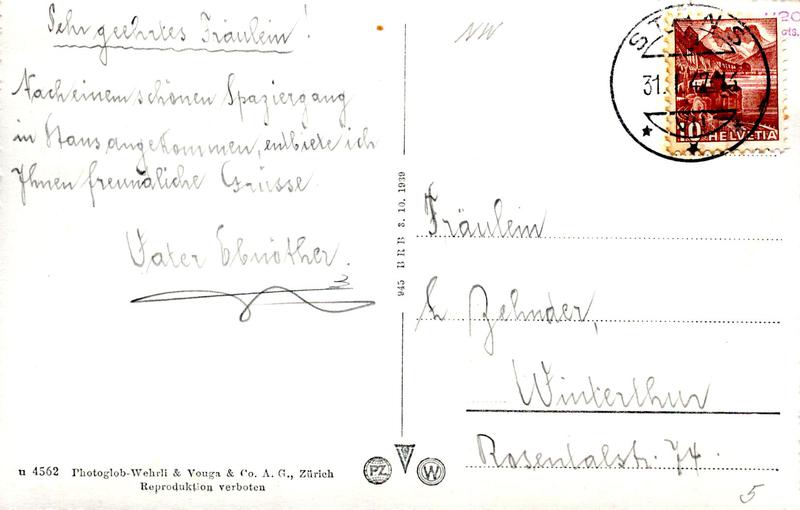 Sehr geehrtes Fräulein!
Nach einem schönen Spaziergang
in Stans angekommen, entbiete ich
Ihnen freundliche Grüsse
Vater Ebnöther.
NW
STANS
31. 42
10 HELVETIA
945 BRB 3. 10. 1939
Fräulein
Zehnder,
Winterthur
Rosentalstr. 74.
u 4562 Photoglob-Wehrli & Vouga & Co. A. G., Zürich
Reproduktion verboten
PZ
W
5